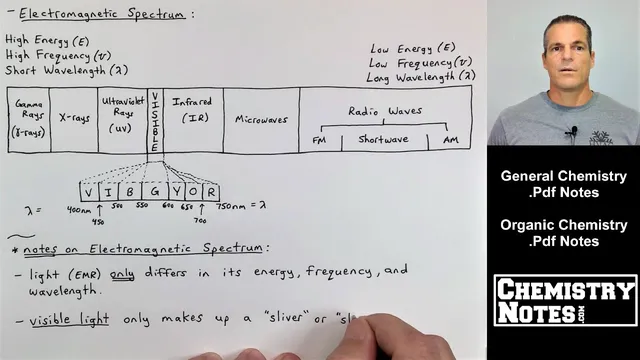 - Electromagnetic Spectrum:
High Energy (E)
High Frequency (ν)
Short Wavelength (λ)
Low Energy (E)
Low Frequency (ν)
Long Wavelength (λ)
Gamma Rays (γ-rays)
X-rays
Ultraviolet Rays (UV)
VISIBLE
Infrared (IR)
Microwaves
Radio Waves
FM Shortwave AM
V I B G Y O R
λ = 400nm 450 500 550 600 650 700 750nm = λ
* notes on Electromagnetic Spectrum:
- light (EMR) only differs in its energy, frequency, and
wavelength.
- visible light only makes up a "sliver" or "sl
General Chemistry
.Pdf Notes
Organic Chemistry
.Pdf Notes
CHEMISTRY
NOTES.COM